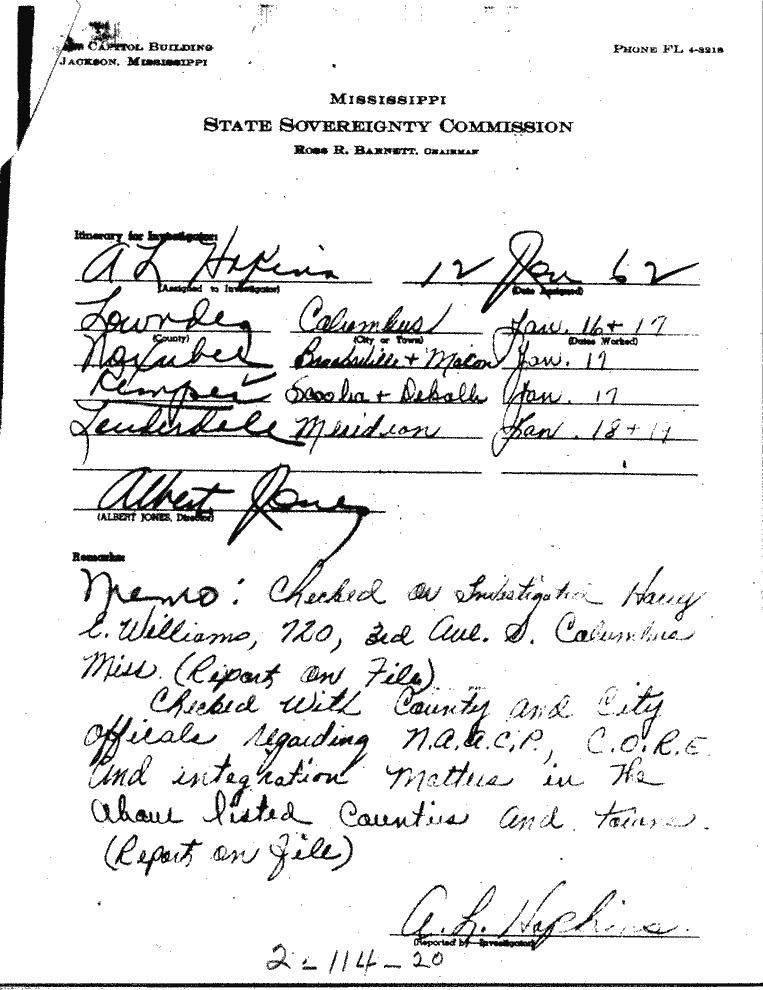 Capitol Building
Jackson, Mississippi
Phone FL 4-3218
Mississippi
State Sovereignty Commission
Ross R. Barnett, Chairman
Itinerary for Investigator:
A L Hopkins 12 Jan 62
(Assigned to Investigator) (Date Assigned)
Lowndes Columbus Jan. 16 + 17
(County) (City or Town) (Dates Worked)
Noxubee Brooksville + Macon Jan. 17
Kemper Scooba + Dekalb Jan. 17
Lauderdale Meridian Jan. 18 + 19
Albert Jones
(ALBERT JONES, Director)
Remarks:
Memo: Checked on Investigation Harry
E. Williams, 720, 3rd Ave. S. Columbus
Miss. (Report on File)
Checked with County and City
officals regarding N.A.A.C.P., C.O.R.E.
and integration matters in the
above listed Counties and towns.
(Report on File)
A. L. Hopkins.
(Reported by Investigator)
2-114-20